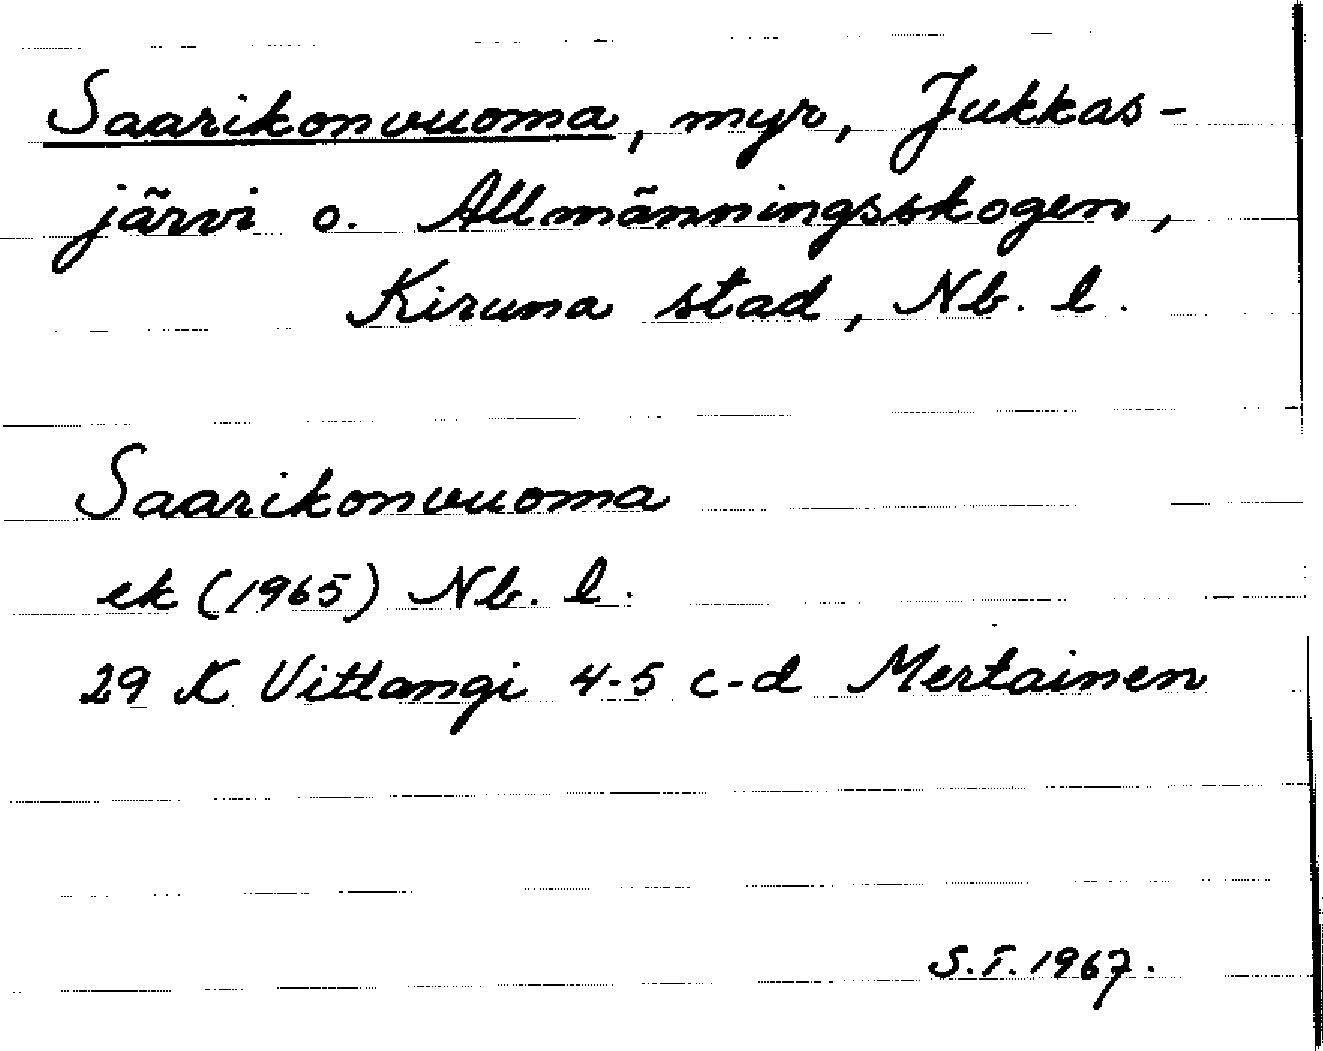 Saarikonvuoma, myr, Jukkas-
järvi o. Allmänningsskogen,
Kiruna stad, Nb. l.
Saarikonvuoma
ek (1965) Nb. l.
29 K Vittangi 4-5 c-d Mertainen
S.T. 1967.